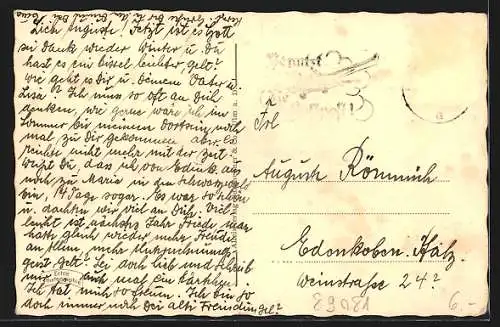 Liebe Auguste! Jetzt ist es Gott
sei Dank wieder Winter u. Du
hast es ein bissel leichter gelt?
Wie geht es Dir u. Deinem Vater u.
Lisa? Ich muß so oft an Dich
denken, wie gerne wäre ich im
Sommer bei meinem Dortsein noch
mal zu Dir gekommen aber. Es
reichte nicht mehr mit der Zeit
weißt Du, daß ich von Edenk. aus
noch zu Maria in den Schwarzwald
bin, 14 Tage sogar. Es war so schön
u. dachten wir viel an Dich. Viel-
leicht ist nächstes Jahr Friede
gleich wieder mehr Freude
an Allem, mehr
geist gelt? Sei doch lieb und schreib
mir auch mal ein Kärtchen.
Ich tät mich so freuen. Ich bin so
doch immer noch Dei alti Freundin gel?
Benutzt
die
Luftpost!
Frl
August Römmich
Edenkoben. Pfalz.
Weinstraße 24?
Echte
89081
6.-